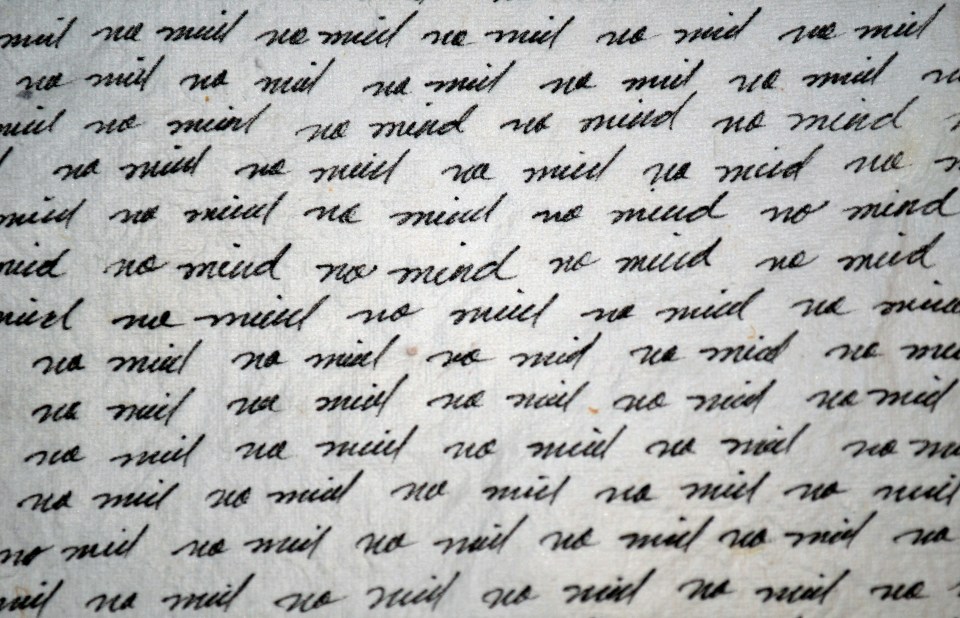 mind no mind no mind no mind no mind no mind
no mind no mind no mind no mind no mind no
mind no mind no mind no mind no mind
no mind no mind no mind no mind no
mind no mind no mind no mind no mind
mind no mind no mind no mind no mind
mind no mind no mind no mind no mind
no mind no mind no mind no mind no mind
no mind no mind no mind no mind no mind
no mind no mind no mind no mind no mind
no mind no mind no mind no mind no mind
no mind no mind no mind no mind no mind no
mind no mind no mind no mind no mind no